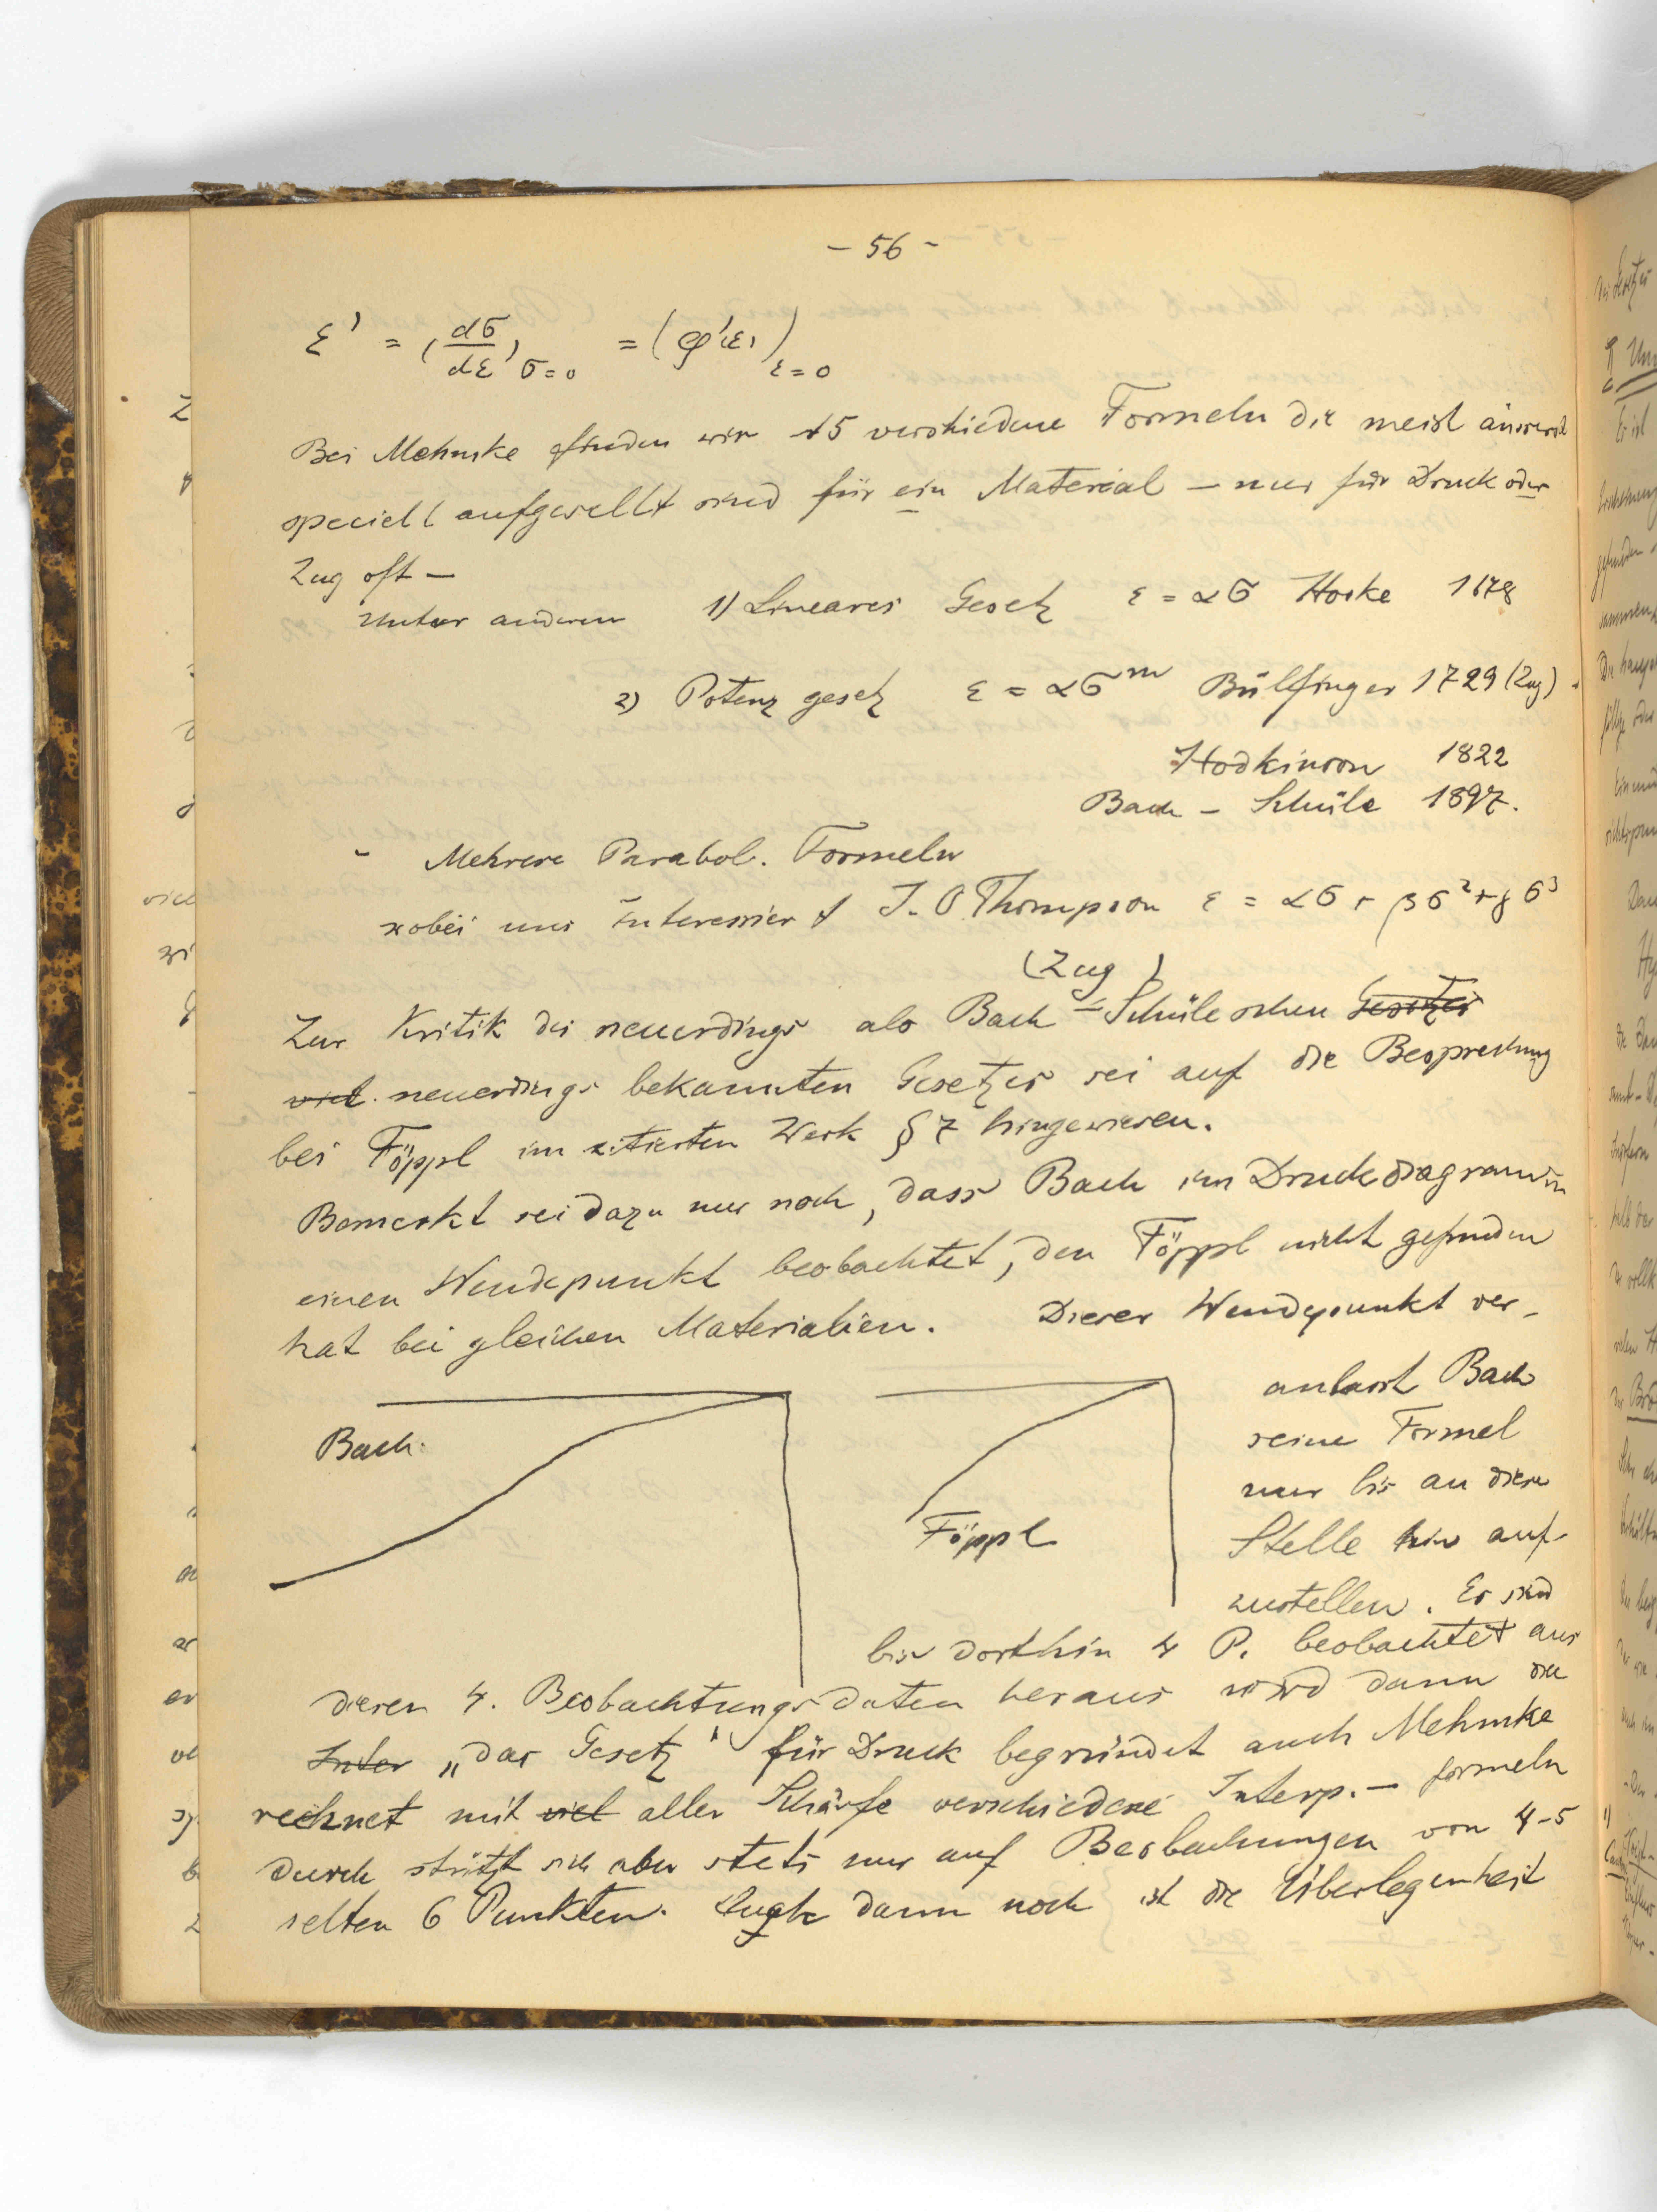 - 56 -
ε' = (dσ/dε')σ=0 = (φ'(ε))ε=0
Bei Mehmke finden wir 15 verschiedene Formeln die meist äusserst
speciell aufgesellt sind für ein Material – nur für Druck oder
Zug oft –
Unter anderen 1) Lineares Gesetz ε = ασ Hooke 1678
2) Potenzgesetz ε = ασ^m Bülfinger 1729 (Zug)
Hodkinson 1822
Bach – Schüle 1897.
Mehrere Parabol. Formeln
wobei uns interessiert J. O. Thompson ε = ασ + βσ² + γσ³
(Zug)
Zur Kritik des neuerdings als Bach – Schüleschen Gesetzes
neuerdings bekannten Gesetzes sei auf die Besprechung
bei Föppl im zitierten Werk § 7 hingewiesen.
Bemerkt sei dazu nur noch, dass Bach im Druckdiagramm
einen Wendepunkt beobachtet, den Föppl nicht gefunden
hat bei gleichen Materialien. Dieser Wendepunkt ver-
anlasst Bach
seine Formel
nur bis an diese
Stelle hin auf-
zustellen. Es sind
Bach.
Föppl
bis dorthin 4 P. beobachtet aus
diesen 4. Beobachtungsdaten heraus wird dann die
Inter „das Gesetz" für Druck begründet auch Mehmke
rechnet mit viel aller Schärfe verschiedene Interp. – formeln
durch stützt sich aber stets nur auf Beobachungen von 4-5
selten 6 Punkten. Auch dann noch ist die Überlegenheit